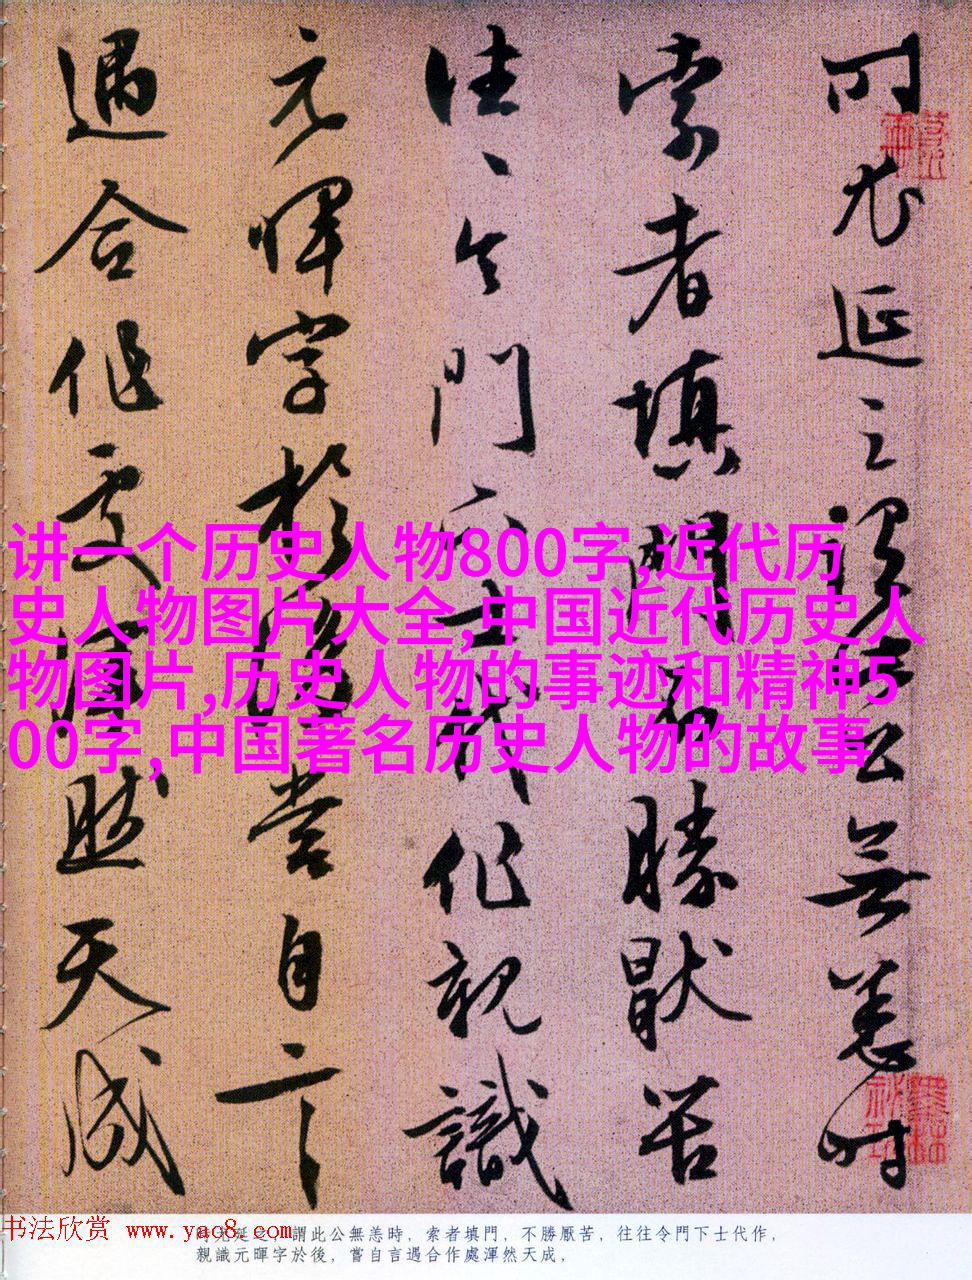 時尤延之謂此公無恙時
索者填門不勝厭苦
往々令門下士代作親識
元暉字於後嘗自言
遇合作處渾然天成
讲一个历史人物800字,近代历
史人物图片大全,中国近代历史人
物图片,历史人物的事迹和精神5
00字,中国著名历史人物的故事
书法欣赏 www.yac8.com
時尤延之謂此公無恙時，索者填門，不勝厭苦，往往令門下士代作，
親識元暉字於後，嘗自言遇合作處渾然天成，